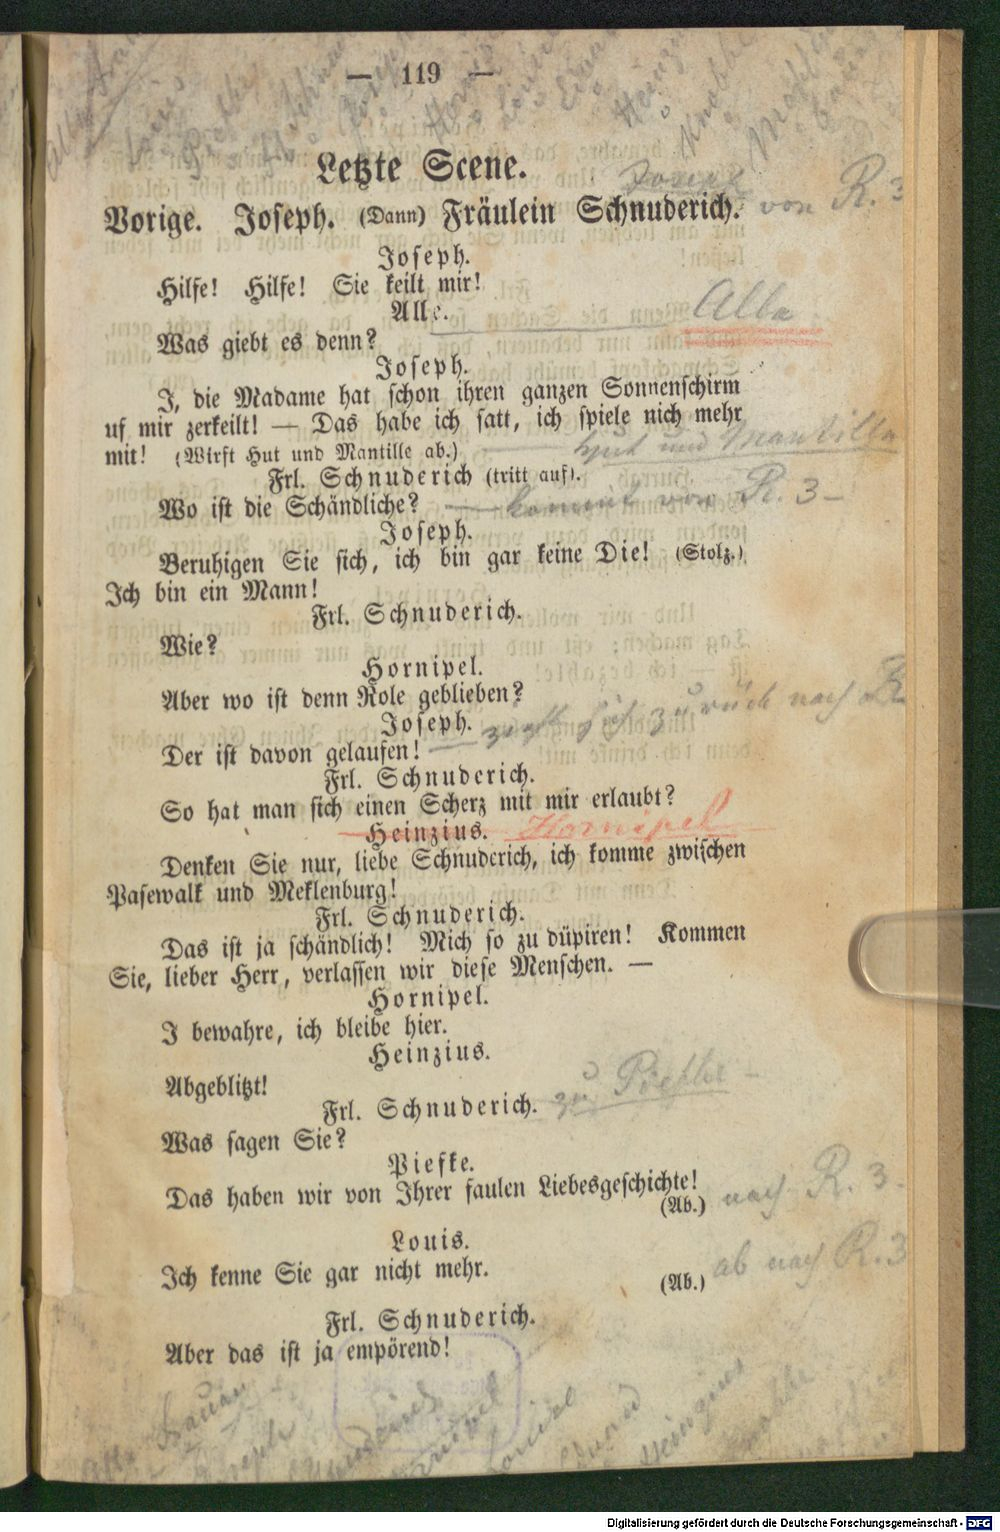 — 119 —
Letzte Scene.
Joseph
Vorige. Joseph. (Dann) Fräulein Schnuderich.
von R. 3
Joseph.
Hilfe! Hilfe! Sie keilt mir!
Alle.
Alle
Was giebt es denn?
Joseph.
I, die Madame hat schon ihren ganzen Sonnenschirm
uf mir zerkeilt! — Das habe ich satt, ich spiele nich mehr
mit! (Wirft Hut und Mantille ab.)
Hut und Mantille
Frl. Schnuderich (tritt auf).
Wo ist die Schändliche?
kommt von R. 3 —
Joseph.
Beruhigen Sie sich, ich bin gar keine Die! (Stolz.)
Ich bin ein Mann!
Frl. Schnuderich.
Wie?
Hornipel.
Aber wo ist denn Role geblieben?
Joseph.
zurück nach R
Der ist davon gelaufen!
Frl. Schnuderich.
So hat man sich einen Scherz mit mir erlaubt?
Heinzius.
Hornipel
Denken Sie nur, liebe Schnuderich, ich komme zwischen
Pasewalk und Meklenburg!
Frl. Schnuderich.
Das ist ja schändlich! Mich so zu düpiren! Kommen
Sie, lieber Herr, verlassen wir diese Menschen. —
Hornipel.
I bewahre, ich bleibe hier.
Heinzius.
Abgeblitzt!
zu Piefke —
Frl. Schnuderich.
Was sagen Sie?
Piefke.
Das haben wir von Ihrer faulen Liebesgeschichte!
(Ab.)
nach R. 3.
Louis.
Ich kenne Sie gar nicht mehr.
(Ab.)
ab nach R. 3
Frl. Schnuderich.
Aber das ist ja empörend!
Digitalisierung gefördert durch die Deutsche Forschungsgemeinschaft - DFG